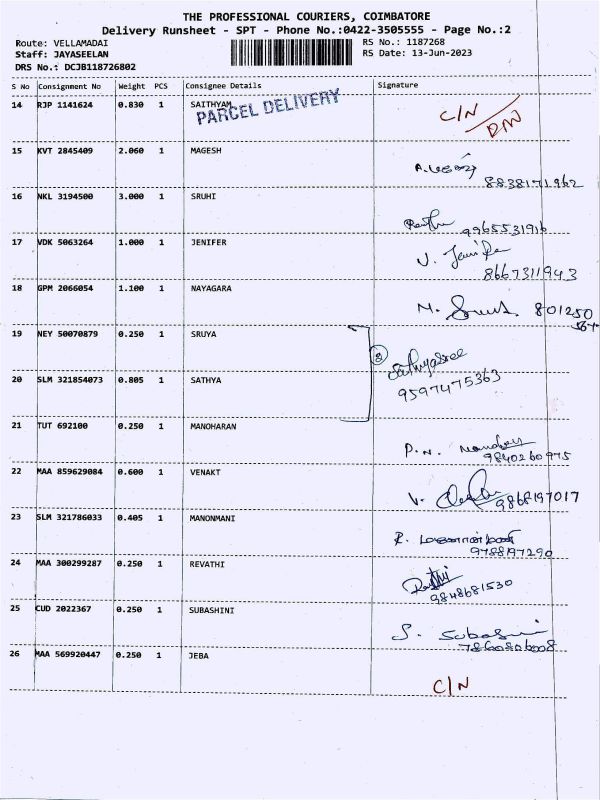 THE PROFESSIONAL COURIERS, COIMBATORE
Delivery Runsheet - SPT - Phone No.:0422-3505555 - Page No.:2
Route: VELLAMADAI
RS No.: 1187268
Staff: JAYASEELAN
RS Date: 13-Jun-2023
DRS No.: DCJB118726802
S No Consignment No Weight PCS Consignee Details Signature
14 RJP 1141624 0.830 1 SAITHYAM
PARCEL DELIVERY
C/N
15 KVT 2845409 2.060 1 MAGESH
8838171962
16 NKL 3194500 3.000 1 SRUHI
9965531916
17 VDK 5063264 1.000 1 JENIFER
8667311943
18 GPM 2066054 1.100 1 NAYAGARA
801250
19 NEY 50070879 0.250 1 SRUYA
Sathyasree
20 SLM 321854073 0.805 1 SATHYA
9597475363
21 TUT 692100 0.250 1 MANOHARAN
P.N.
9840260975
22 MAA 859629084 0.600 1 VENAKT
V.
9868197017
23 SLM 321786033 0.405 1 MANONMANI
9788197290
24 MAA 300299287 0.250 1 REVATHI
9848681530
25 CUD 2022367 0.250 1 SUBASHINI
S. Subashini
26 MAA 569920447 0.250 1 JEBA
C/N